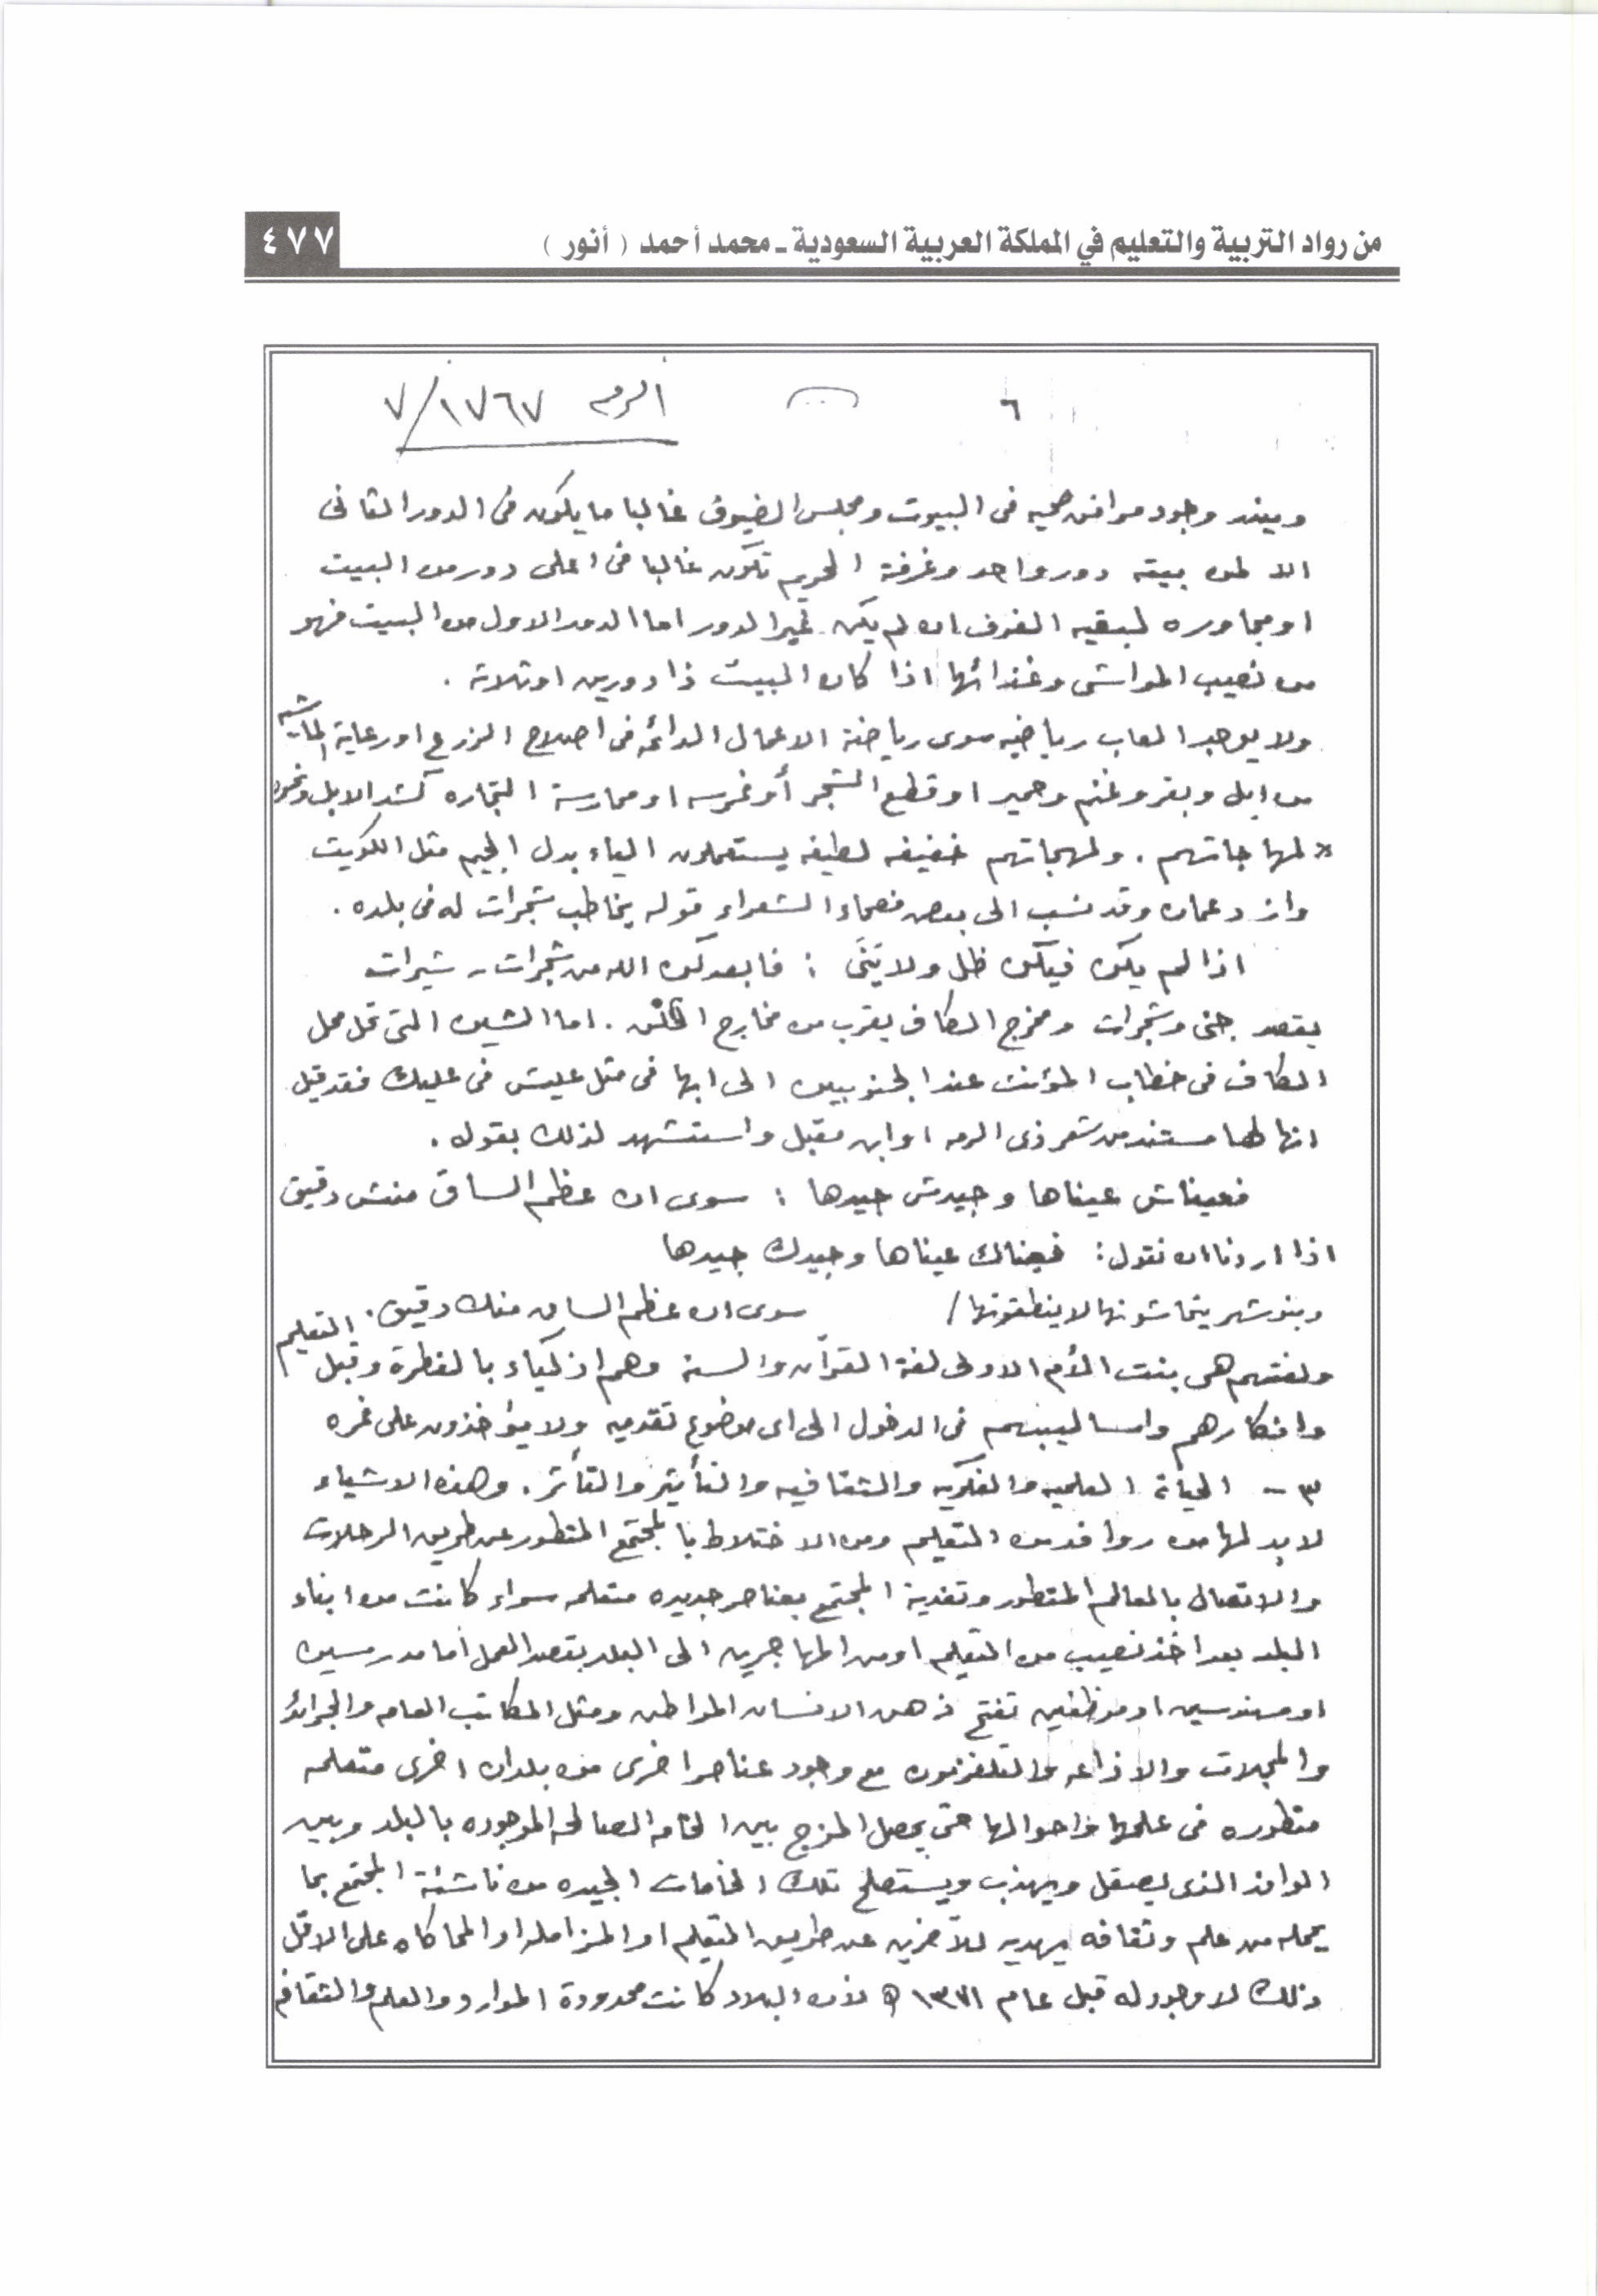 من رواد التربية والتعليم في المملكة العربية السعودية ـ محمد أحمد ( أنور )
٤٧٧
٦
الرقم ١٧٦٧/٧
ويندر وجود مرافق صحيه فى البيوت ومجلس الضيوف غالبا ما يكون فى الدور الثانى
الا لمن بيته دور واحد وغرفة الحريم تكون غالبا فى اعلى دور من البيت
او مجاوره لبقيه الغرف ان لم يكن غير الدور اما الدور الاول من البيت فهو
من نصيب المواشى وغذائها اذا كان البيت ذا دورين او ثلاثة .
ولا يوجد العاب رياضيه سوى رياضة الاعمال الدائمه فى اصلاح الزرع او رعاية الماشيه
من ابل وبقر وغنم وحمير او قطع الشجر أو غرسه او ممارسة التجاره كشد الابل ونحوه
* لهاجاتهم . ولهجاتهم خفيفه لطيفه يستعملون الياء بدل الجيم مثل الكويت
وازد عمان وقد نسب الى بعض فصحاء الشعراء قوله يخاطب شجرات له فى بلده .
اذا لم يكن فيكن ظل ولا يَنَى : فابعدكن الله من شجرات - شيرات
يقصد جنى وشجرات ومخرج الكاف يقرب من مخارج . اما الشين التى تحل محل
الكاف فى خطاب المؤنث عند الجنوبيين الى ابها فى مثل عليش فى عليك فقد قيل
انها لها مستند من شعر ذى الرمه او ابن مقبل واستشهد لذلك بقوله .
فعيناش عيناها وجيدش جيدها : سوى ان عظم الساق منش دقيق
اذا اردنا ان نقول : فعيناك عيناها وجيدك جيدها
وبنو شهر يتحاشونها لا ينطقونها / سوى ان عظم الساق منك دقيق .
ولغتهم هى بنت الأم الاولى لغة القرآن والسنة وهم اذكياء بالفطرة وقبل التعليم
وافكارهم واساليبهم فى الدخول الى اى موضوع تقدميه ولا يؤاخذون على غره
٣ - الحياة العلميه والفكريه والثقافيه والتأثير والتأثر . وهذه الاشياء
لا بد لها من روافد من التعليم ومن الاختلاط بالمجتمع المتطور عن طريق الرحلات
والاتصال بالعالم المتطور وتغذية المجتمع بعناصر جديده متعلمه سواء كانت من ابناء
البلد بعد اخذ نصيب من التعليم او من المهاجرين الى البلد بقصد العمل اما مدرسين
او مهندسين او موظفين تفتح ذهن الانسان المواطن ومثل المكاتب العامه والجرائد
والمجلات والاذاعه والتلفزيون مع وجود عناصر اخرى من بلدان اخرى متعلمه
متطوره فى علمها واحوالها حتى يحصل المزج بين الخامه الصالحه الموجوده بالبلد وبين
الوافد الذى يصقل ويهذب ويستصلح تلك الخامات الجيده من ناشئة المجتمع بما
يحمله من علم وثقافه يهديه للآخرين عن طريق التعليم او المزامله او المحاكاه على الاقل
وذلك لا وجود له قبل عام ١٣٧١ ه لأن البلاد كانت محدودة الموارد والعلم والثقافه